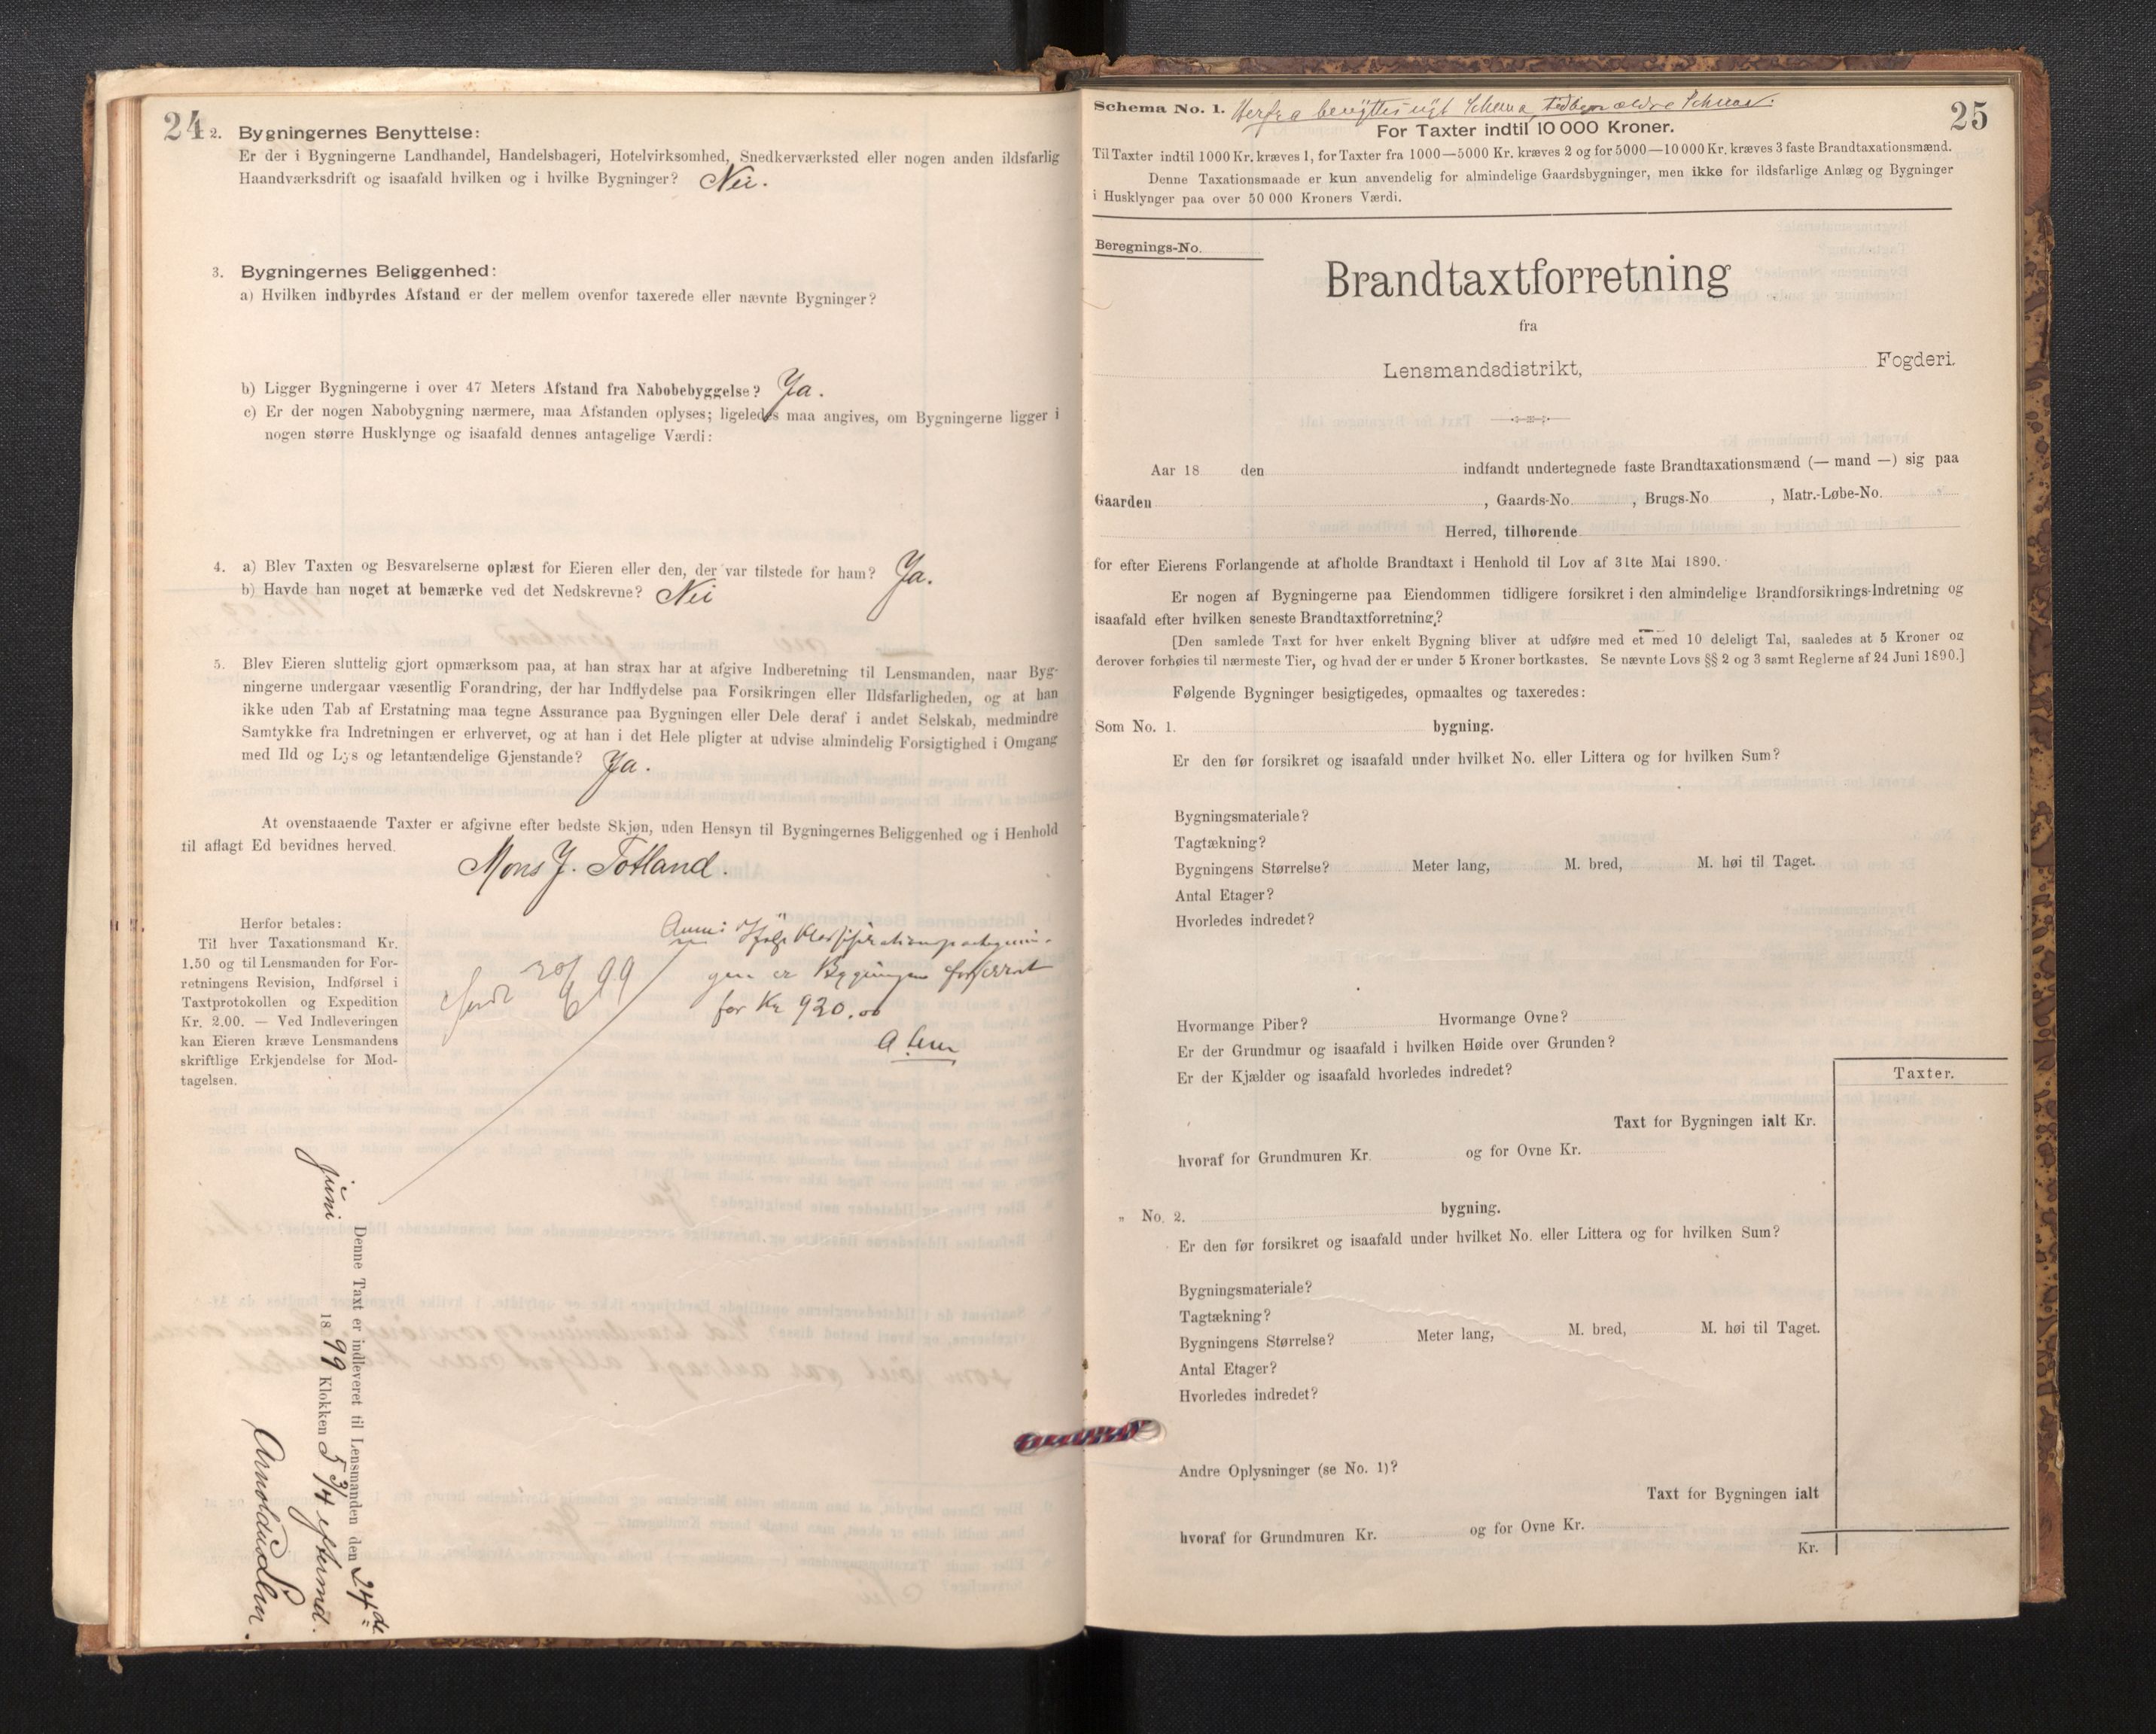 24
2. Bygningernes Benyttelse:
Er der i Bygningerne Landhandel, Handelsbageri, Hotelvirksomhed, Snedkerværksted eller nogen anden ildsfarlig
Haandværksdrift og isaafald hvilken og i hvilke Bygninger? Nei.
3. Bygningernes Beliggenhed:
a) Hvilken indbyrdes Afstand er der mellem ovenfor taxerede eller nævnte Bygninger?
b) Ligger Bygningerne i over 47 Meters Afstand fra Nabobebyggelse? Ja.
c) Er der nogen Nabobygning nærmere, maa Afstanden oplyses; ligeledes maa angives, om Bygningerne ligger i
nogen større Husklynge og isaafald dennes antagelige Værdi:
4. a) Blev Taxten og Besvarelserne oplæst for Eieren eller den, der var tilstede for ham? Ja.
b) Havde han noget at bemærke ved det Nedskrevne? Nei
5. Blev Eieren sluttelig gjort opmærksom paa, at han strax har at afgive Indberetning til Lensmanden, naar Byg-
ningerne undergaar væsentlig Forandring, der har Indflydelse paa Forsikringen eller Ildsfarligheden, og at han
ikke uden Tab af Erstatning maa tegne Assurance paa Bygningen eller Dele deraf i andet Selskab, medmindre
Samtykke fra Indretningen er erhvervet, og at han i det Hele pligter at udvise almindelig Forsigtighed i Omgang
med Ild og Lys og letantændelige Gjenstande? Ja.
At ovenstaaende Taxter er afgivne efter bedste Skjøn, uden Hensyn til Bygningernes Beliggenhed og i Henhold
til aflagt Ed bevidnes herved.
Mons J. Totland.
Herfor betales:
Til hver Taxationsmand Kr.
1.50 og til Lensmanden for For-
retningens Revision, Indførsel i
Taxtprotokollen og Expedition
Kr. 2.00. — Ved Indleveringen
kan Eieren kræve Lensmandens
skriftlige Erkjendelse for Mod-
tagelsen.
Anm: Ifølge
gen er Bygningen
for Kr 920.00
Denne Taxt er indleveret til Lensmanden den 24de
Juni 1899 Klokken 5 3/4 eftermd.
Schema No. 1. Herfra benyttes nyt Schema,
25
For Taxter indtil 10 000 Kroner.
Til Taxter indtil 1000 Kr. kræves 1, for Taxter fra 1000—5000 Kr. kræves 2 og for 5000—10 000 Kr. kræves 3 faste Brandtaxationsmænd.
Denne Taxationsmaade er kun anvendelig for almindelige Gaardsbygninger, men ikke for ildsfarlige Anlæg og Bygninger
i Husklynger paa over 50 000 Kroners Værdi.
Beregnings-No.
Brandtaxtforretning
fra
Lensmandsdistrikt, Fogderi.
Aar 18 den indfandt undertegnede faste Brandtaxationsmænd (— mand —) sig paa
Gaarden , Gaards-No. , Brugs-No , Matr.-Løbe-No.
Herred, tilhørende
for efter Eierens Forlangende at afholde Brandtaxt i Henhold til Lov af 31te Mai 1890.
Er nogen af Bygningerne paa Eiendommen tidligere forsikret i den almindelige Brandforsikrings-Indretning og
isaafald efter hvilken seneste Brandtaxtforretning?
[Den samlede Taxt for hver enkelt Bygning bliver at udføre med et med 10 deleligt Tal, saaledes at 5 Kroner og
derover forhøies til nærmeste Tier, og hvad der er under 5 Kroner bortkastes. Se nævnte Lovs §§ 2 og 3 samt Reglerne af 24 Juni 1890.]
Følgende Bygninger besigtigedes, opmaaltes og taxeredes:
Som No. 1. bygning.
Er den før forsikret og isaafald under hvilket No. eller Littera og for hvilken Sum?
Bygningsmateriale?
Tagtækning?
Bygningens Størrelse? Meter lang, M. bred, M. høi til Taget.
Antal Etager?
Hvorledes indredet?
Hvormange Piber? Hvormange Ovne?
Er der Grundmur og isaafald i hvilken Høide over Grunden?
Er der Kjælder og isaafald hvorledes indredet?
Taxter.
Taxt for Bygningen ialt Kr.
hvoraf for Grundmuren Kr. og for Ovne Kr.
„ No. 2. bygning.
Er den før forsikret og isaafald under hvilket No. eller Littera og for hvilken Sum?
Bygningsmateriale?
Tagtækning?
Bygningens Størrelse? Meter lang, M. bred, M. høi til Taget.
Antal Etager?
Hvorledes indredet?
Andre Oplysninger (se No. 1)?
Taxt for Bygningen ialt
hvoraf for Grundmuren Kr. og for Ovne Kr.
Kr.